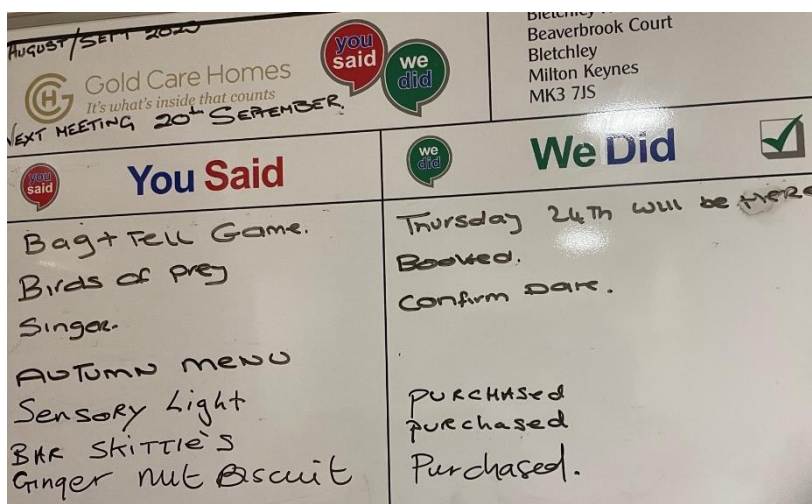 AUGUST/SEPT 2023
Gold Care Homes
It's what's inside that counts
NEXT MEETING 20th SEPTEMBER.
you said
we did
Beaverbrook Court
Bletchley
Milton Keynes
MK3 7JS
you said
You Said
we did
We Did
Bag + Tell Game.
Thursday 24th will be HERE
Birds of prey
Booked.
Singer.
Confirm Date.
AUTUMN MENU
Sensory Light
PURCHASED
BAR SKITTLE'S
purchased
Ginger nut Biscuit
Purchased.